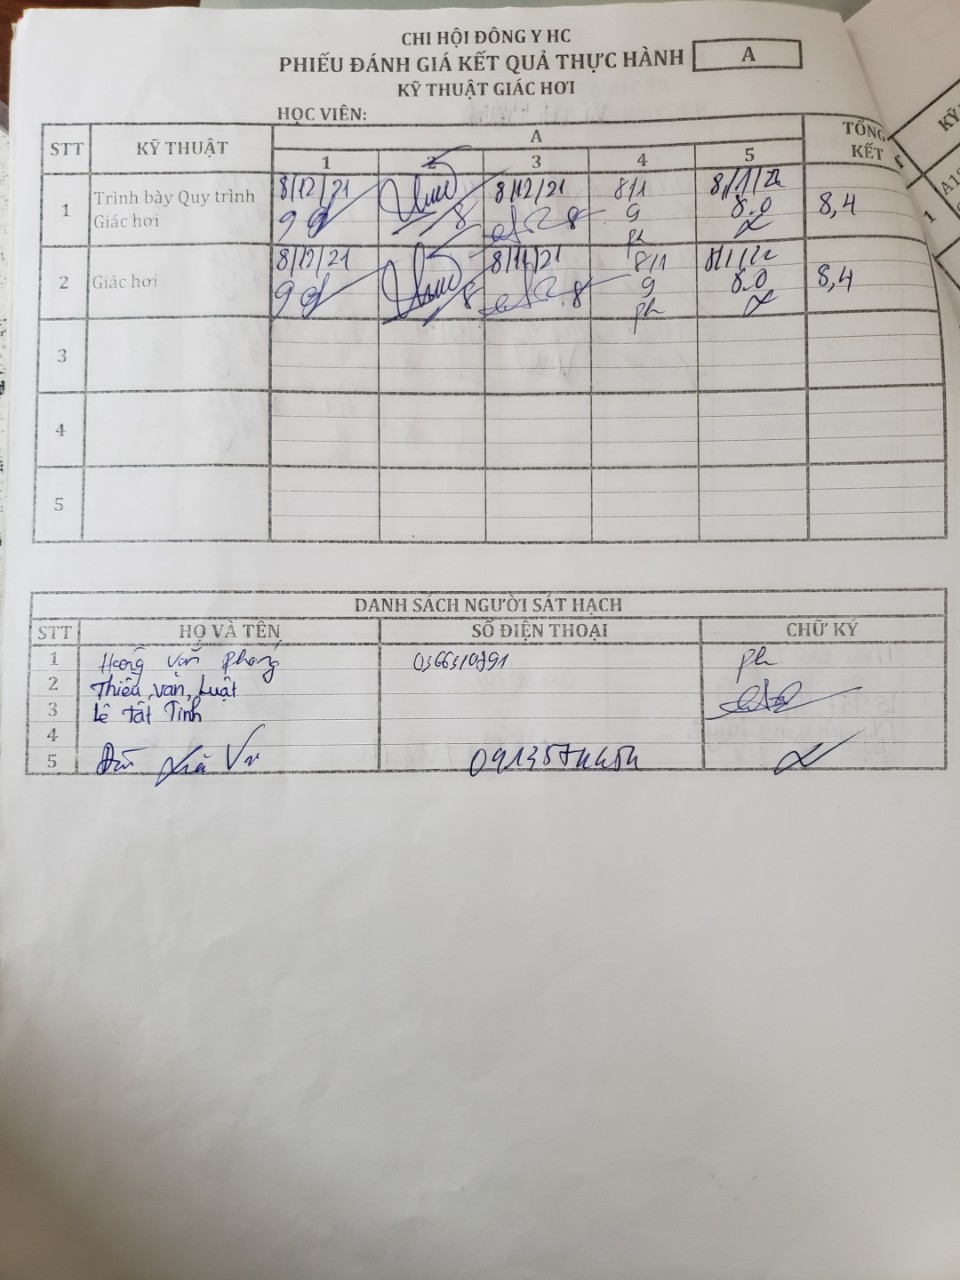 CHI HỘI ĐÔNG Y HC
PHIẾU ĐÁNH GIÁ KẾT QUẢ THỰC HÀNH A
KỸ THUẬT GIÁC HƠI
HỌC VIÊN:
STT KỸ THUẬT A TỔNG KẾT
1 2 3 4 5
1 Trình bày Quy trình Giác hơi 8,4
8/12/21 8/12/21 8/11 8/1/22
9 8 8 9 8.0
ph
2 Giác hơi 8,4
8/12/21 8/11 8/1/22
9 8 8 9 8.0
ph
3
4
5
DANH SÁCH NGƯỜI SÁT HẠCH
STT HỌ VÀ TÊN SỐ ĐIỆN THOẠI CHỮ KÝ
1 Hoàng văn phong ph
2 Thiều văn Luật
3 Lê Tất Tính
4
5
KỸ
1